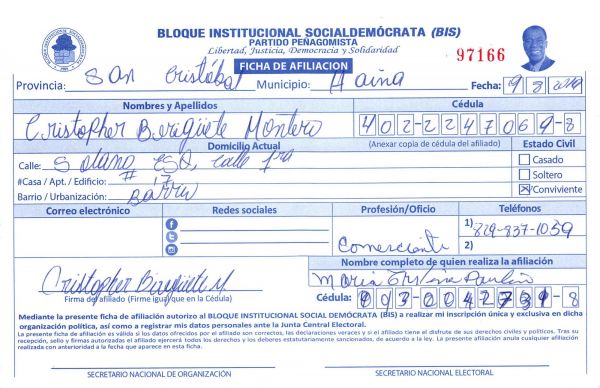 BLOQUE INSTITUCIONAL SOCIALDEMÓCRATA (BIS)
PARTIDO PEÑAGOMISTA
Libertad, Justicia, Democracia y Solidaridad
FICHA DE AFILIACION
97166
Provincia: San Cristóbal Municipio: Haina Fecha: 9 8
Nombres y Apellidos Cédula
Cristopher Berigüete Montero 402-2247069-8
Domicilio Actual (Anexar copia de cédula del afiliado) Estado Civil
Calle: Solano esq, calle 1ra Casado
#Casa / Apt. / Edificio: # 17 Soltero
Barrio / Urbanización: Barrio Conviviente
Correo electrónico Redes sociales Profesión/Oficio Teléfonos
1) 829-837-1059
Comerciante 2)
Nombre completo de quien realiza la afiliación
Cristopher Berigüete M. Maria
Firma del afiliado (Firme igual que en la Cédula) Cédula: 093-0042731-8
Mediante la presente ficha de afiliación autorizo al BLOQUE INSTITUCIONAL SOCIAL DEMÓCRATA (BIS) a realizar mi inscripción única y exclusiva en dicha
organización política, así como a registrar mis datos personales ante la Junta Central Electoral.
La presente ficha de afiliación es válida si los datos ofrecidos por el afiliado son correctos, las declaraciones veraces y si el afiliado tiene el disfrute de sus derechos civiles y políticos. Tras su
recepción, sello y firmas autorizadas el afiliado ejercerá todos los derechos y los deberes estatutariamente sancionados, de acuerdo a la ley. La presente afiliación anula cualquier afiliación
realizada con anterioridad a la fecha que aparece en esta ficha.
SECRETARIO NACIONAL DE ORGANIZACIÓN SECRETARIO NACIONAL ELECTORAL